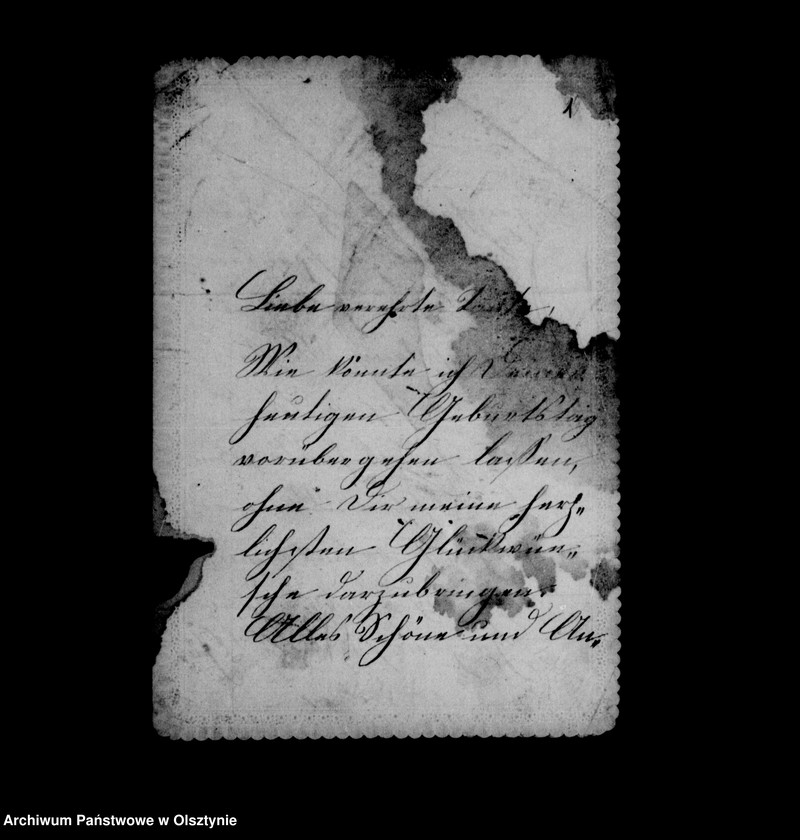 1
Liebe verehrte Tante,
Wie könnte ich Deinen
heutigen Geburtstag
vorübergehen lassen,
ohne Dir meine herz„
lichsten Glückwün„
sche darzubringen.
Alles Schöne und An„
Archiwum Państwowe w Olsztynie